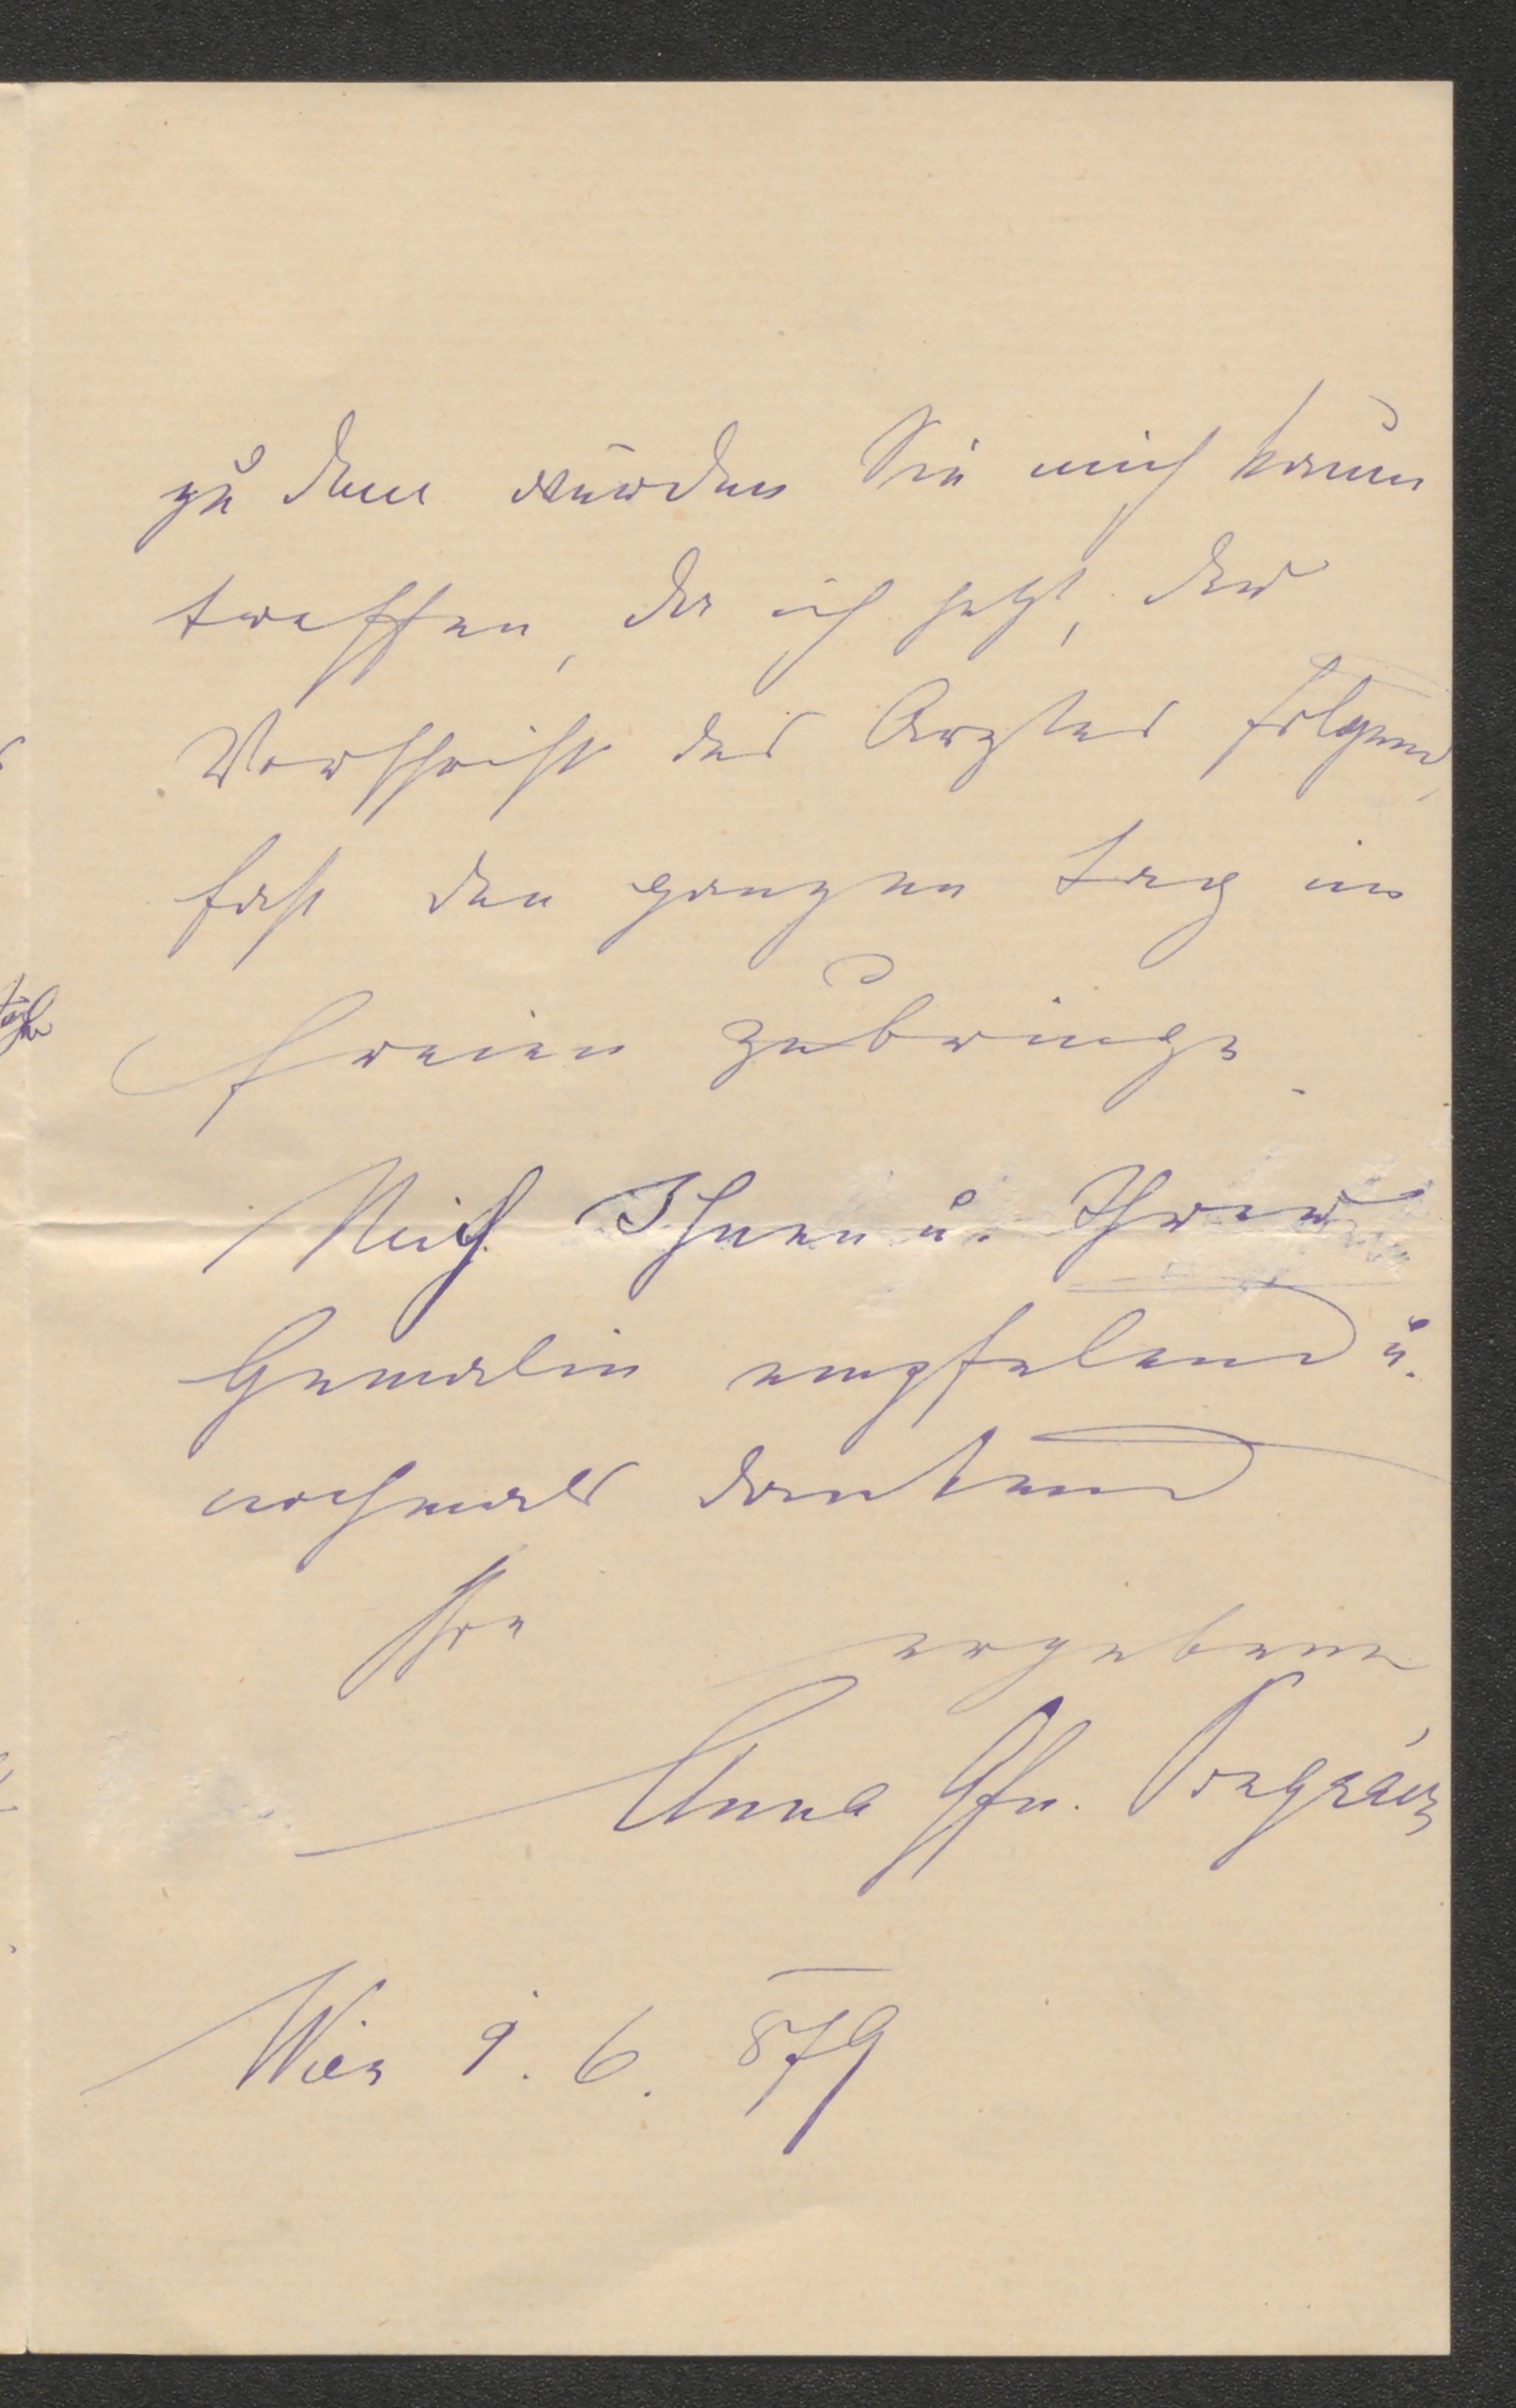 zu dem würden Sie mich kaum
treffen, da ich jetzt, der
Vorschrift des Arztes folgend,
fast den ganzen Tag im
freien zubringe.
Mich Ihnen u. Ihrer
Gemalin empfelend u.
nochmals dankend
Ihre ergebene
Anna Gfn. Pongrácz
Wien 9. 6. 879